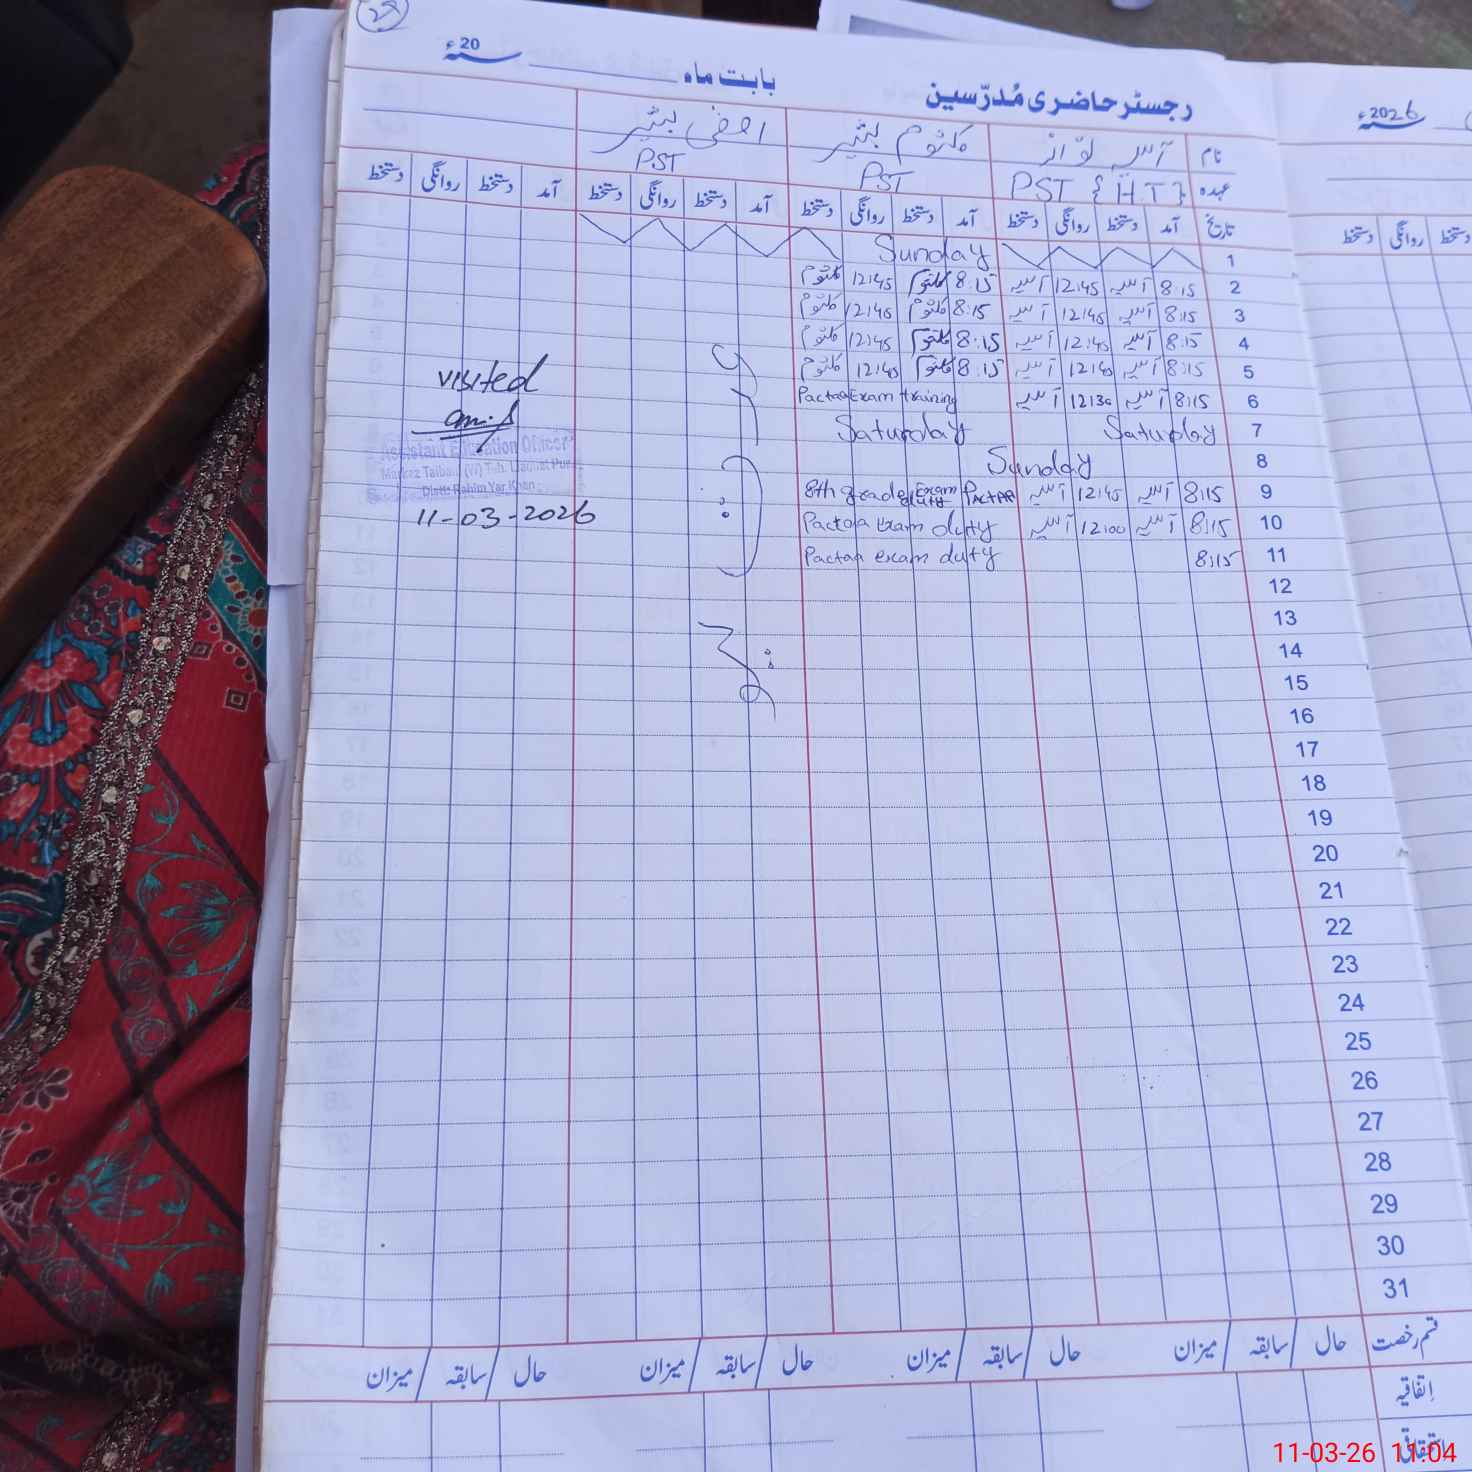 29
رجسٹر حاضری مُدرّسین بابت ماہ ـــــــ 20ء
2026ء
نام آسیہ نواز کلثوم بشیر اقصٰی بشیر
عہدہ PST {H.T} PST PST
تاریخ آمد دستخط روانگی دستخط آمد دستخط روانگی دستخط آمد دستخط روانگی دستخط آمد دستخط روانگی دستخط
دستخط روانگی دستخط
1 Sunday
2 8:15 آسیہ 12:45 آسیہ 8:15 کلثوم 12:45 کلثوم
3 8:15 آسیہ 12:45 آسیہ 8:15 کلثوم 12:45 کلثوم
4 8:15 آسیہ 12:45 آسیہ 8:15 کلثوم 12:45 کلثوم
5 8:15 آسیہ 12:45 آسیہ 8:15 کلثوم 12:45 کلثوم
6 8:15 آسیہ 12:30 آسیہ Pectaa Exam training
7 Saturday Saturday
8 Sunday
9 8:15 آسیہ 12:45 آسیہ 8th grade Exam duty PACTAA
10 8:15 آسیہ 12:00 آسیہ Pactaa Exam duty
11 8:15 Pactaa exam duty
visited
Assistant Education Officer
Markaz Taibad (W) Teh. Liaquat Pur
Distt: Rahim Yar Khan
11-03-2026
12
13
14
15
16
17
18
19
20
21
22
23
24
25
26
27
28
29
30
31
قسم رخصت حال / سابقہ / میزان حال / سابقہ / میزان حال / سابقہ / میزان حال / سابقہ / میزان
اِتفاقیہ
11-03-26 11:04